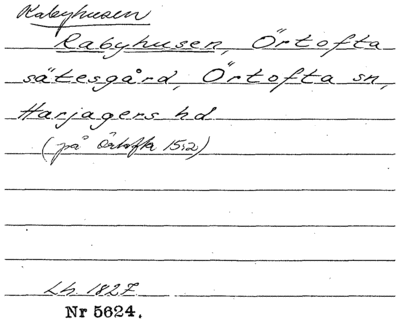 Rabyhusen
Rabyhusen, Örtofta
sätesgård, Örtofta sn,
Harjagers hd
(på Örtofta 15:2)
Lh. 1827
Nr 5624.